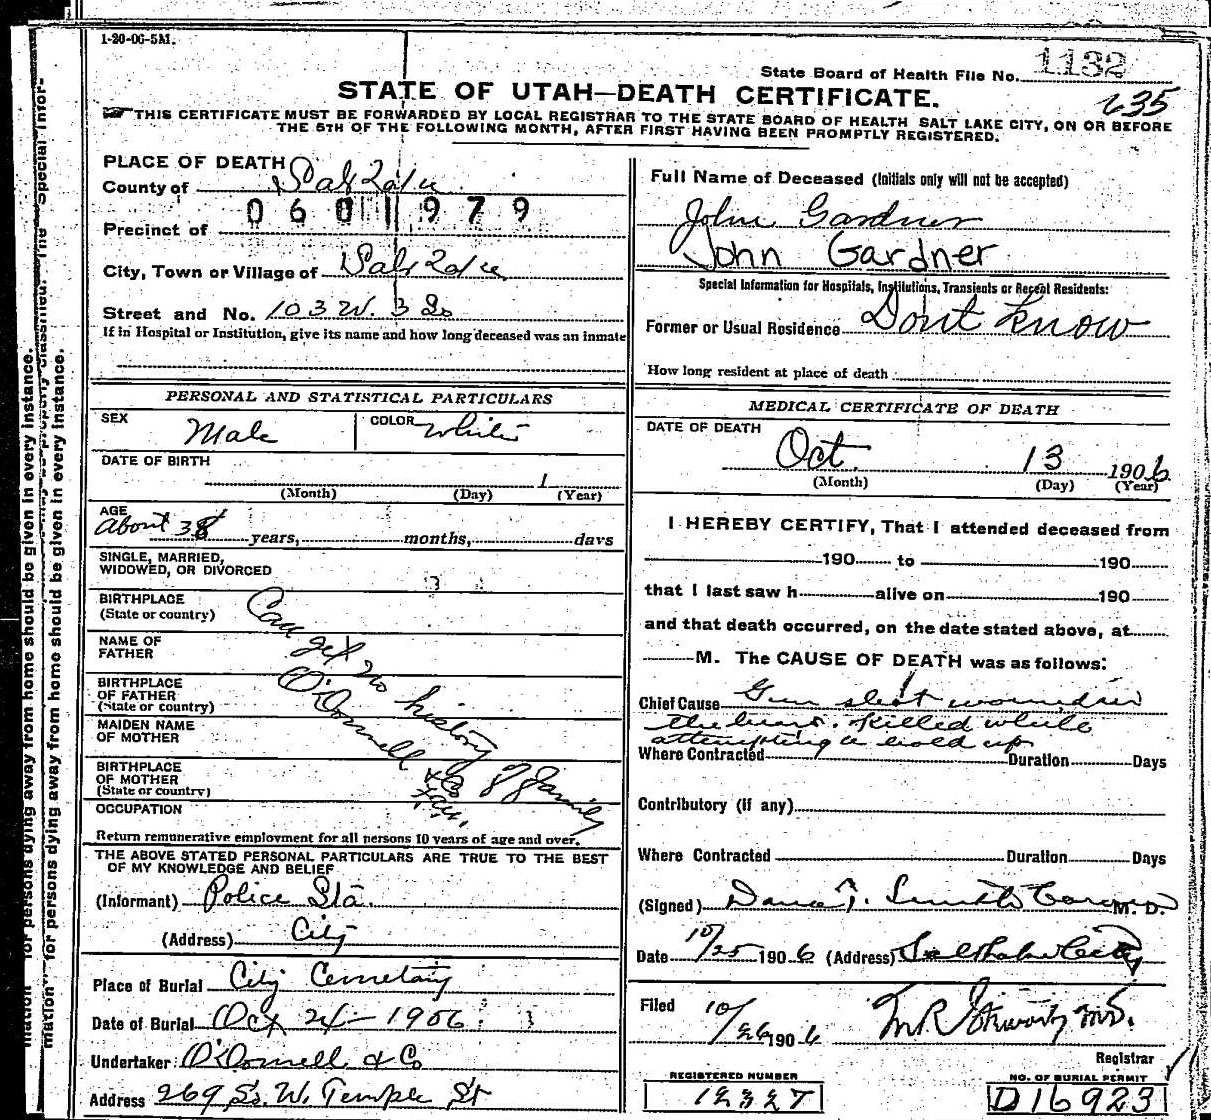 1-20-06-5M.
State Board of Health File No. 1132
STATE OF UTAH—DEATH CERTIFICATE.
635
THIS CERTIFICATE MUST BE FORWARDED BY LOCAL REGISTRAR TO THE STATE BOARD OF HEALTH SALT LAKE CITY, ON OR BEFORE
THE 5TH OF THE FOLLOWING MONTH, AFTER FIRST HAVING BEEN PROMPTLY REGISTERED.
PLACE OF DEATH
County of Salt Lake
0601979
Precinct of
City, Town or Village of Salt Lake
Street and No. 103 W. 3 So
If in Hospital or Institution, give its name and how long deceased was an inmate
PERSONAL AND STATISTICAL PARTICULARS
SEX Male COLOR White
DATE OF BIRTH
1
(Month) (Day) (Year)
AGE
About 38 years, months, days
SINGLE, MARRIED,
WIDOWED, OR DIVORCED
BIRTHPLACE
(State or country)
NAME OF
FATHER
BIRTHPLACE
OF FATHER
(State or country)
MAIDEN NAME
OF MOTHER
BIRTHPLACE
OF MOTHER
(State or country)
OCCUPATION
Can get no history of family
O'Donnell & Co
Return remunerative employment for all persons 10 years of age and over.
THE ABOVE STATED PERSONAL PARTICULARS ARE TRUE TO THE BEST
OF MY KNOWLEDGE AND BELIEF
(Informant) Police Sta.
(Address) City
Place of Burial City Cemetary
Date of Burial Oct 24 - 1906
Undertaker O'Donnell & Co
Address 269 So. W. Temple St
Full Name of Deceased (Initials only will not be accepted)
John Gardner
John Gardner
Special Information for Hospitals, Institutions, Transients or Recent Residents:
Former or Usual Residence Dont Know
How long resident at place of death
MEDICAL CERTIFICATE OF DEATH
DATE OF DEATH
Oct 13 1906
(Month) (Day) (Year)
I HEREBY CERTIFY, That I attended deceased from
190 to 190
that I last saw h alive on 190
and that death occurred, on the date stated above, at
M. The CAUSE OF DEATH was as follows:
Chief Cause Gun shot wound in
the heart. Killed while
attempting a hold up
Where Contracted Duration Days
Contributory (if any)
Where Contracted Duration Days
(Signed) Dana T. Smith Coroner M. D.
Date 10/25 1906 (Address) Salt Lake City
Filed 10/26 1906
M.D.
Registrar
REGISTERED NUMBER
12327
NO. OF BURIAL PERMIT
D16923
for persons dying away from home should be given in every instance.